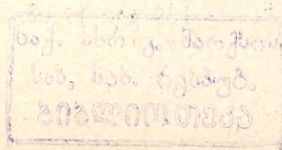 საქ. სსრ კ. მარქსის
სახ. სახ. რესპუბ.
ᲑᲘᲑᲚᲘᲝᲗᲔᲙᲐ